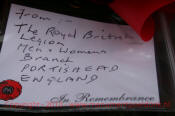 From :-
The Royal British
Legion
Men & Womens
Branch
PORTISHEAD
ENGLAND
In Remembrance